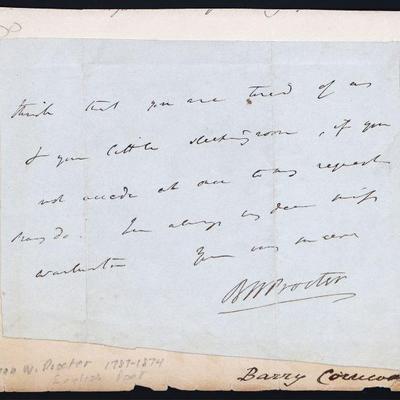 think that you are tired of us
& your little sleeping room, if you
not accede at once to my request
Pray do. I am always my dear Miss
Warburton Yours very sincere
B W Procter
W. Procter 1787-1874
English Poet
Barry Cornwa